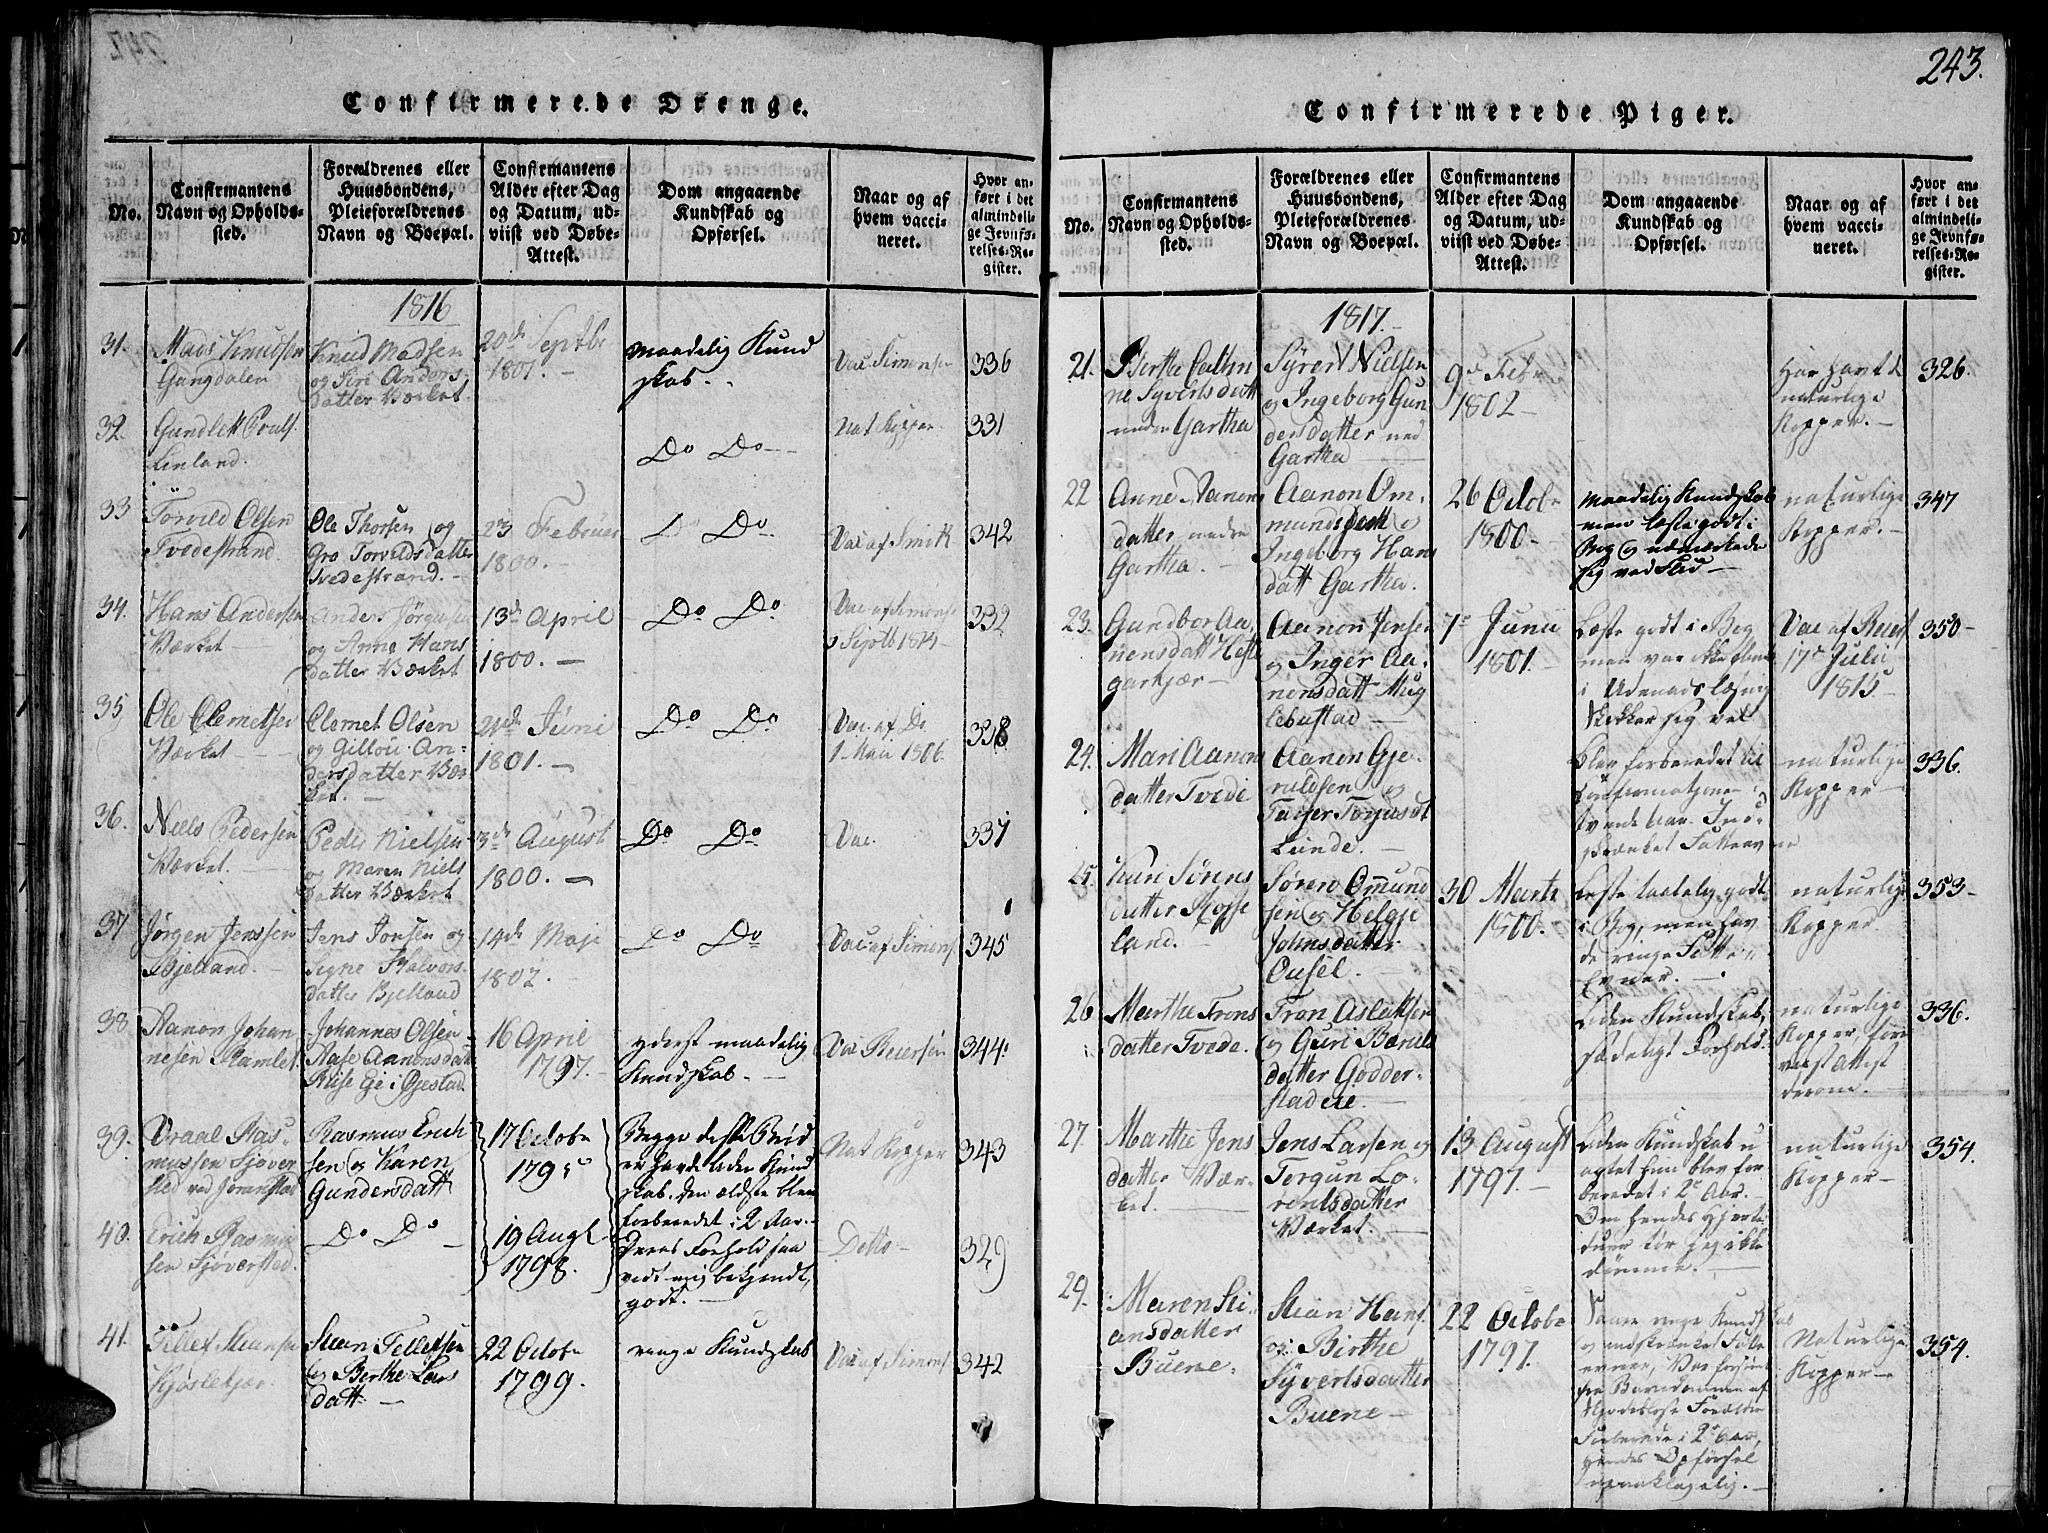 243.
Confirmerede Drenge.
No.
Confirmantens
Navn og Opholds-
sted.
Forældrenes eller
Huusbondens,
Pleieforældrenes
Navn og Boepæl.
Confirmantens
Alder efter Dag
og Datum, ud-
viist ved Døbe-
Attest.
Dom angaaende
Kundskab og
Opførsel.
Naar og af
hvem vacci-
neret.
Hvor an-
ført i det
almindeli-
ge Jevnfø-
relses-Re-
gister.
1816
31.
Mads Knudsen
Gangdalen
Knud Madsen
og Siri Anders-
datter Værket
20de Septbr
1801. -
maadelig Kund
skab.
Vac Simonsen
336
32.
Gundlek Pouls.
Linland.
Do Do
Nat Kopper
331
33
Torvild Olsen
Tvedestrand
Ole Thorsen og
Gro Torvildsdatter
Tvedestrand. -
23 Februar
1800. -
Do Do
Vac af Smith
342
34.
Hans Andersen
Værket
Anders Jørgensen
og Anne Hans
datter Værket
13de April
1800. -
Do Do
Vac af Simonsen
332
35
Ole Clemetsen
Værket
Clemet Olsen
og Gillou An-
dersdatter Vær
ket. -
Juni
1801. -
Do Do
Vac. af Do
1 Mai 1806
338
36.
Niels Pedersen
Værket.
Peder Nielsen
og Maren Niels
datter Værket
3de August
1800. -
Do Do
Vac.
337
37
Jørgen Jenssen
Bjelland. -
Jens Jonsen og
Signe Halvors
datter Bjelland
14de Maji
1802.
Do Do
Vac af Simons
345
38.
Aanon Johan
nesen Ramlet.
Johannes Olsen
Aase Aanonsdatt
Riise Eje i Øjestad
16 April
1797. -
yderst maadelig
Kundskab. -
Vac Reiersen
344.
39.
Vraal Ras-
mussen Sjøver
sted ved Joranstad
Rasmus Erich
sen og Karen
Gundersdatt
17 Octobr
1795
Begge disse Brød
re havde liden Kund
skab. Den ældste blev
forberedet i 2 Aar.
Deres Forhold saa
vidt mig bekjendt,
godt. -
Nat Kopper
343
40.
Erich Rasmus
sen Sjøversted.
Do Do -
19 Augt
1798.
Detto -
329
41.
Tellef Steansen
Stean Tellefsen
og Berthe Lars
datt. -
22 Octobr
1799.
ringe Kundskab
Vac af Simons
342
Confirmerede Piger.
No.
Confirmantens
Navn og Opholds-
sted.
Forældrenes eller
Huusbondens,
Pleieforældrenes
Navn og Boepæl.
Confirmantens
Alder efter Dag
og Datum, ud-
viist ved Døbe-
Attest.
Dom angaaende
Kundskab og
Opførsel.
Naar og af
hvem vacci-
neret.
Hvor an-
ført i det
almindeli-
ge Jevnfø-
relses-Re-
gister.
1817.
21.
Berthe Cathri
ne Syvertsdatt
neder Gartha
Syvert Nielsen
og Ingeborg Gun
dersdatter ned
Gartha
9de Febr
1802 -
Har havt de
naturlige
Kopper. -
326.
22
Anne Aanons
datter nedre
Gartha. -
Aanon Om-
mundsen og
Ingeborg Hans
datt Gartha.
26 Octobr
1800 -
maadelig Kundskab
men læste godt i
Bog og udmærkede
sig ved Flid -
naturlige
Kopper. -
347
23.
Gundbor Aa-
nensdatt Heste
garkjær -
Aanon Jensen
og Inger Aa-
nonsdatt Mug
lebustad -
7de Junii
1801. -
Læste godt i Bog
men var ikke
i Udenadslæsning
Skikker sig vel
Vac af Reiers
17de Julii
1815
350 -
24.
Mari Aanons
datter Tvede
Aanon Gje-
ruldsen og
Torjusdt
Lunde. -
Blev forberedet til
Confirmationen i
naturlige
Kopper
336.
25.
Kari Sørens
datter Mosse
land. -
Søren Omund
sen og Helgje
Johnsdatter
Ousel. -
30 Marts
1800.
Læste taalelig godt
i Bog, men hav
de ringe Fatte-
Evner. -
naturlige
Kopper.
353 -
26
Marthe Trons
datter Tvede.
Tron Aslaksen
og Guri Bærulds
datter Godder-
stad eie. -
Liden Kundskab,
sædeligt Forhold.
naturlige
Kopper, fore
viist Attest
derom. -
336.
27.
Marthe Jens
datter Vær-
ket.
Jens Larsen og
Torgun Lo-
rentsdatter
Værket. -
13 August
1797. -
Liden Kundskab u
agtet hun blev for
beredet i 2de Aar. -
Om hendes Hjerte
tør jeg ikke
dømme. -
naturlige
Kopper -
354.
29.
Maren Ste
ansdatter
Buene -
Stean Hans.
og Birthe
Syvertsdatter
Buene -
22 Octobr
1797.
Saare ringe Kundskab
og indskrænket Fatte
evner, Var forsømt
fra Barndommen af
Gudesløse Forældre
Forberede i 2de Aar,
hendes Opførsel
upaaklagelig. -
Naturlige
Kopper -
354.